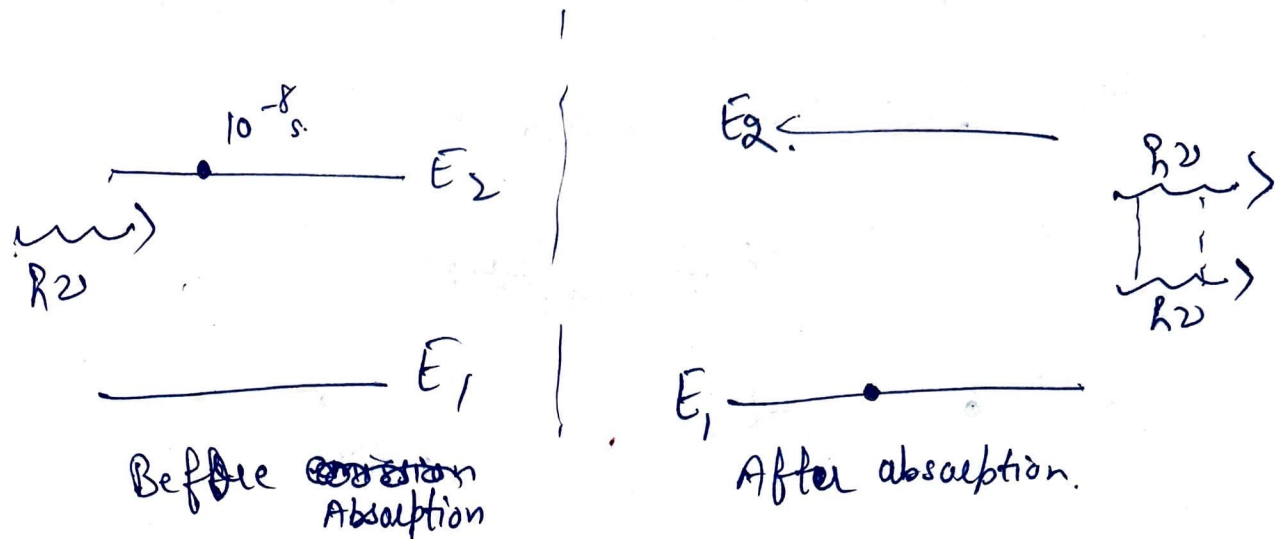 10⁻⁸ s.
E₂
hν
E₁
Before
Absorption
E₂
hν
hν
E₁
After absorption.